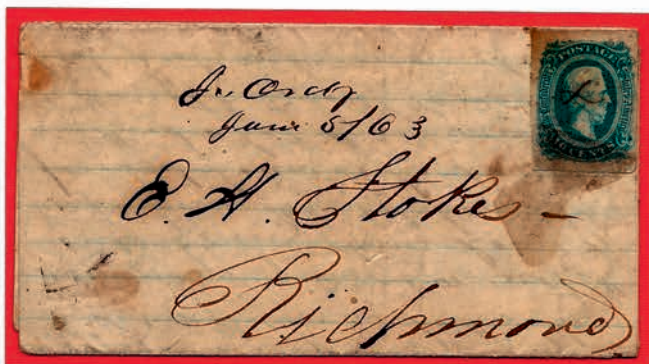 POSTAGE
TEN CENTS
June 5/63
E. H. Stokes -
Richmond